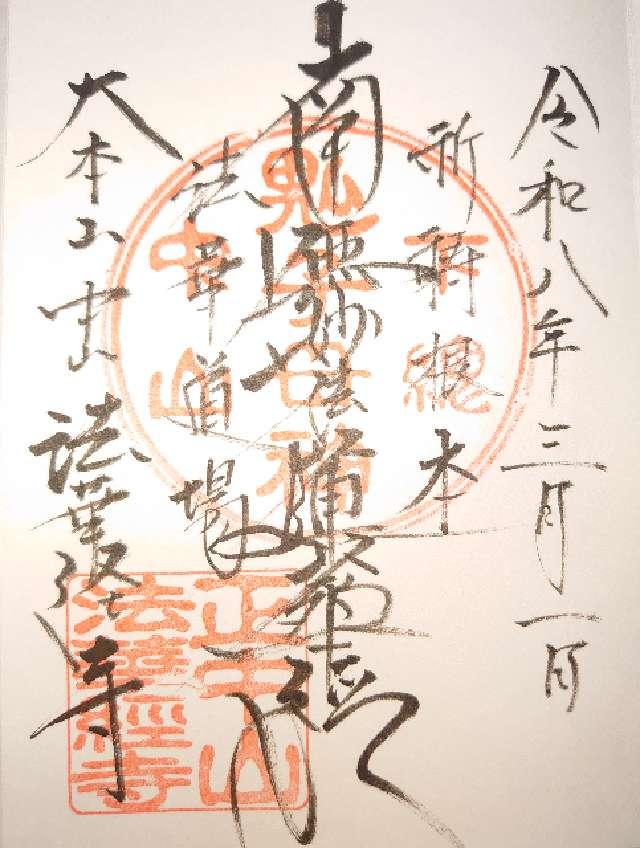 令和八年三月一日
祈祷根本
南無妙法蓮華経
法華道場
大本山中山法華経寺
正中山
法華經寺